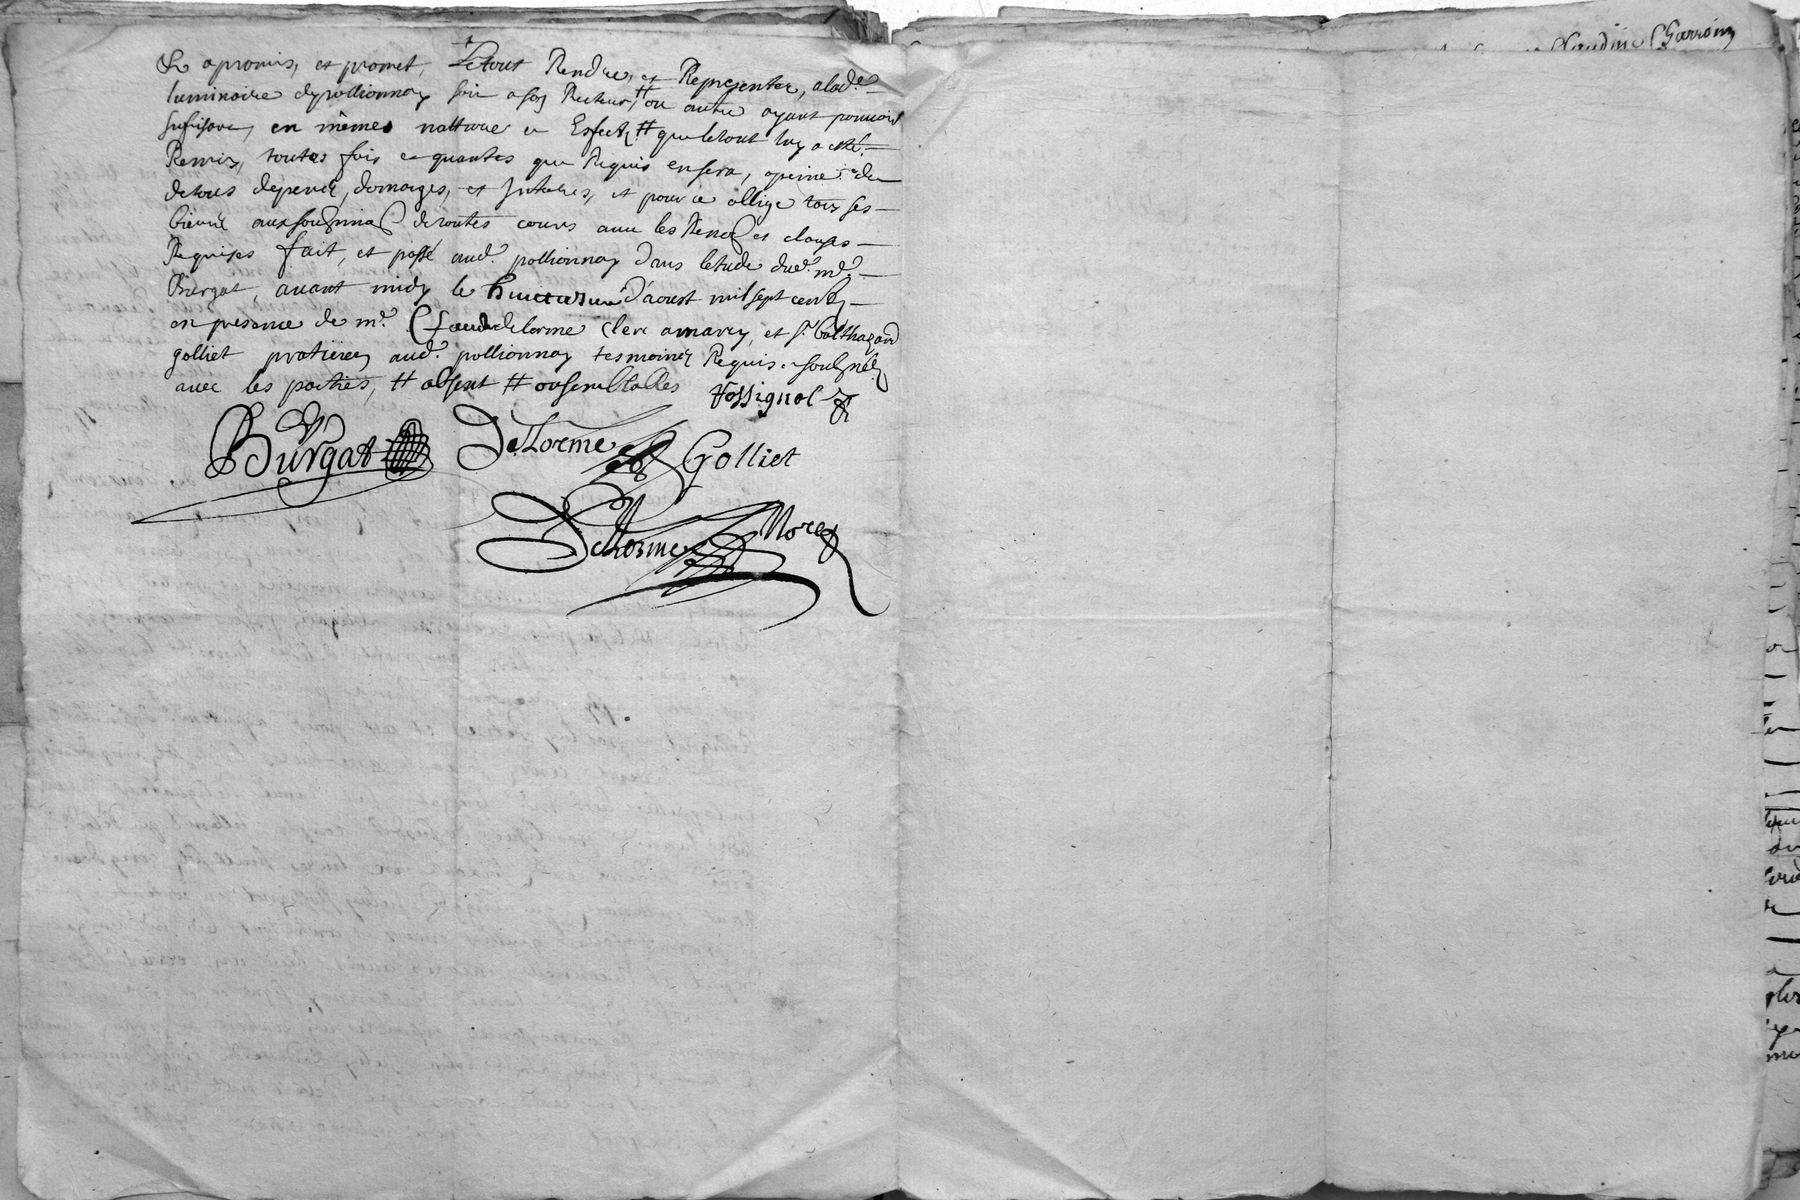 Et a promis, et promet, Letout Rendre, et Representer, alad.e
luminaire depollionnay soit a son Recteur, # ou autre ayant pouvoir
sufisant, en mêmes natture et Esfects # que letout luy a esté
Remis, toutes fois et quantes que Requis en sera, apeine de
detous depends, domages, et Interests, et pour ce oblige tous ses
biens aux soubmissions detoutes cours avec les Renon et clauses
Requises fait, et passé aud.t pollionnay dans letude dud.t m.e
Burgat, avant midy le huictiesme d'aoust mil sept cents
en presence de m.e Claude delorme clerc amarcy, et s.r Balthazard
golliet praticien aud.t pollionnay tesmoins Requis soubsnés
avec les parties, # absent # ou semblables Vossignol
Burgat DeLorme Golliet
DeLorme Morel
Claudine Charroin